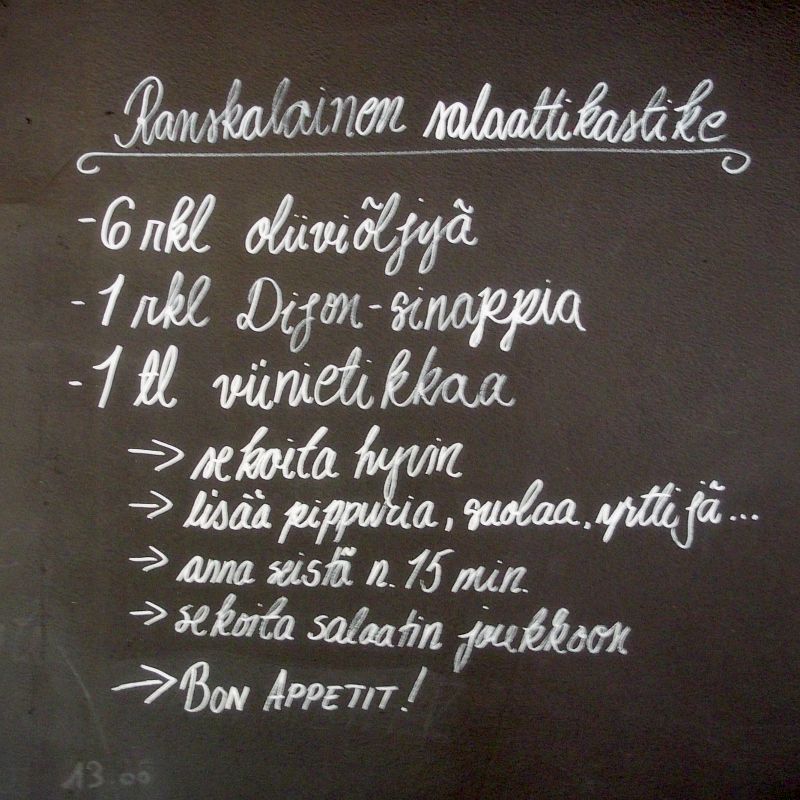 Ranskalainen salaattikastike
-6 rkl oliiviõljyã
-1 rkl Dijon-sinappia
-1 tl viinietikkaa
→ sekoita hyvin
→ lisää pippuria, suolaa, yrttijä...
→ anna seistä n. 15 min.
→ sekoita salaatin joukkoon
→ BON APPETIT!
13.00